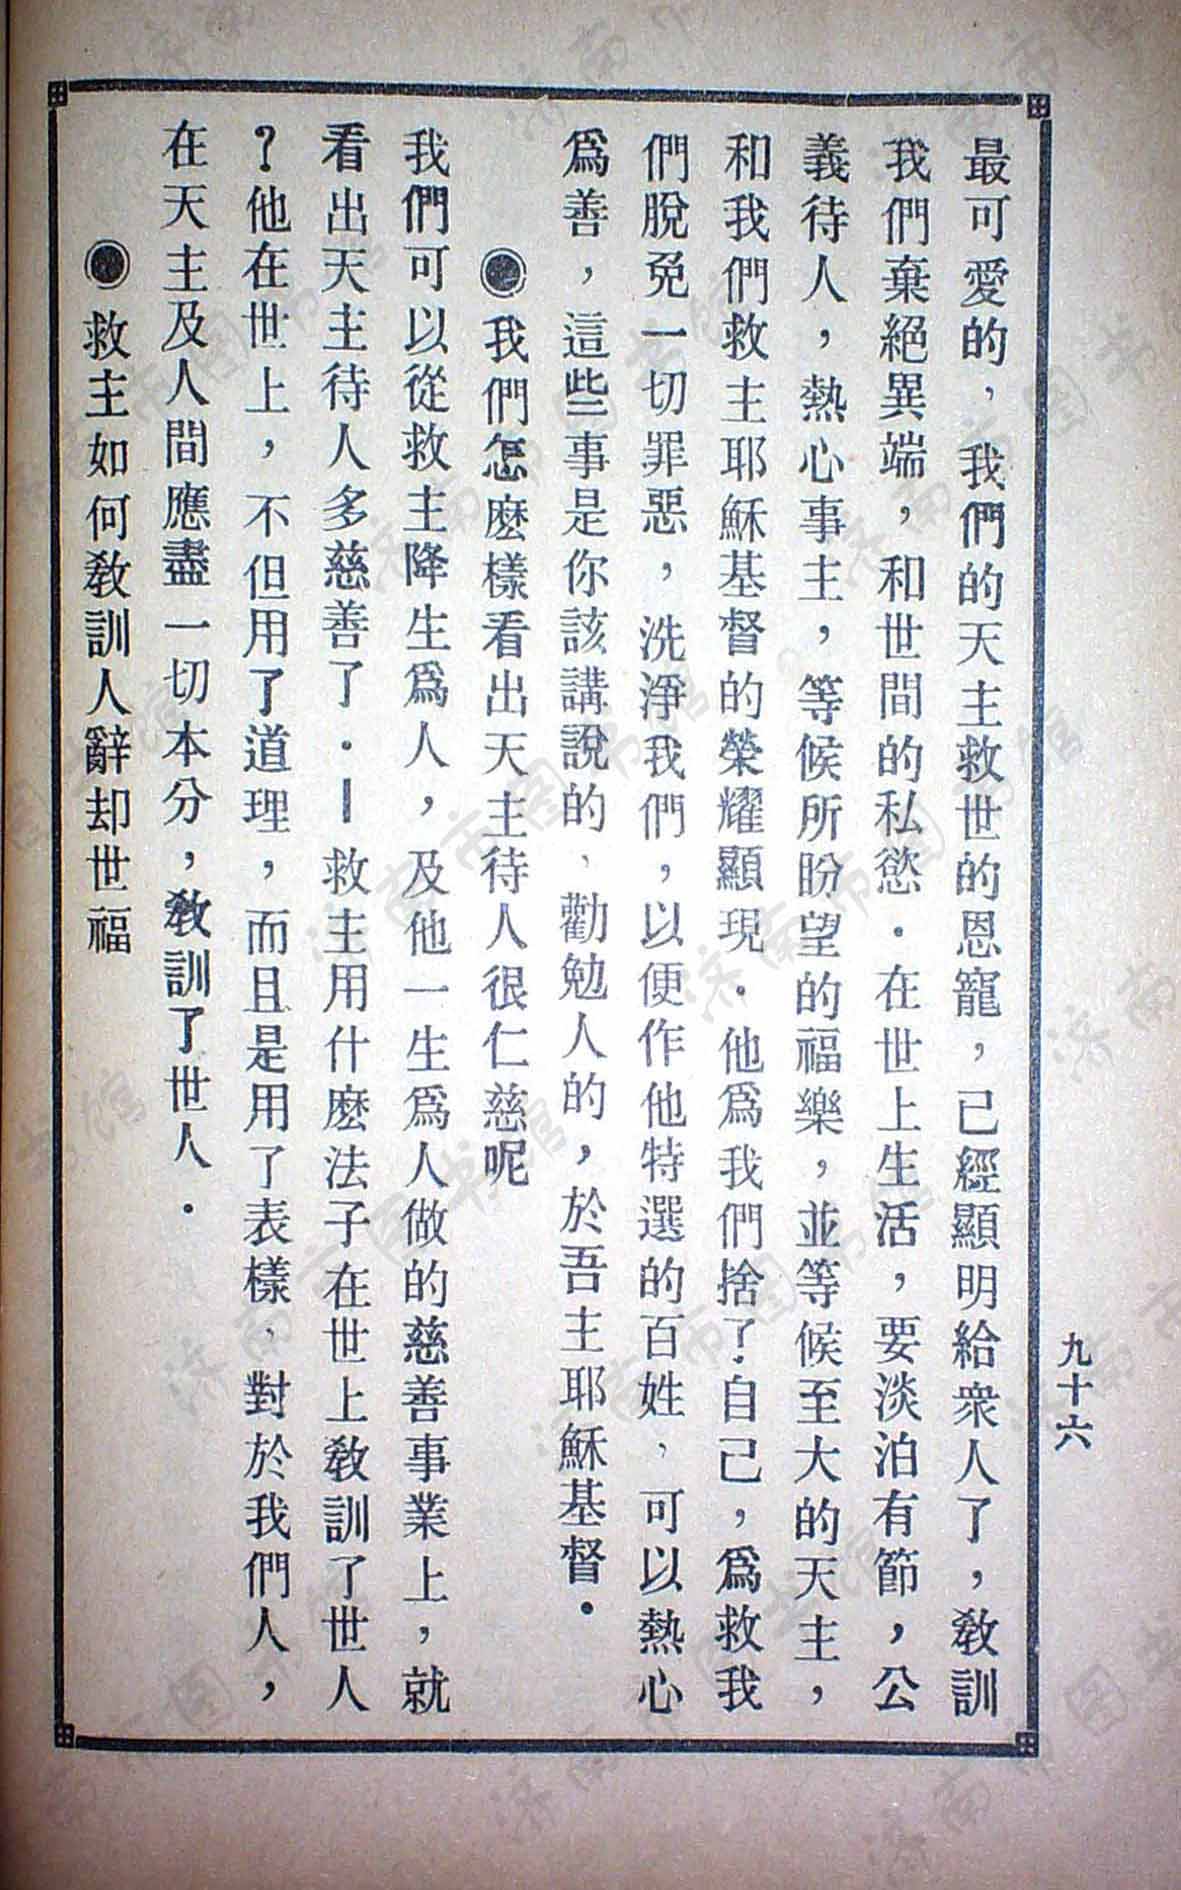 九十六
最可愛的，我們的天主救世的恩寵，已經顯明給衆人了，教訓
我們棄絕異端，和世間的私慾．在世上生活，要淡泊有節，公
義待人，熱心事主，等候所盼望的福樂，並等候至大的天主，
和我們救主耶穌基督的榮耀顯現．他爲我們捨了自己，爲救我
們脫免一切罪惡，洗淨我們，以便作他特選的百姓，可以熱心
爲善，這些事是你該講說的、勸勉人的，於吾主耶穌基督．
◉我們怎麽樣看出天主待人很仁慈呢
我們可以從救主降生爲人，及他一生爲人做的慈善事業上，就
看出天主待人多慈善了．｜救主用什麽法子在世上教訓了世人
？他在世上，不但用了道理，而且是用了表樣、對於我們人，
在天主及人間應盡一切本分，教訓了世人．
◉救主如何教訓人辭却世福
济南市图书馆